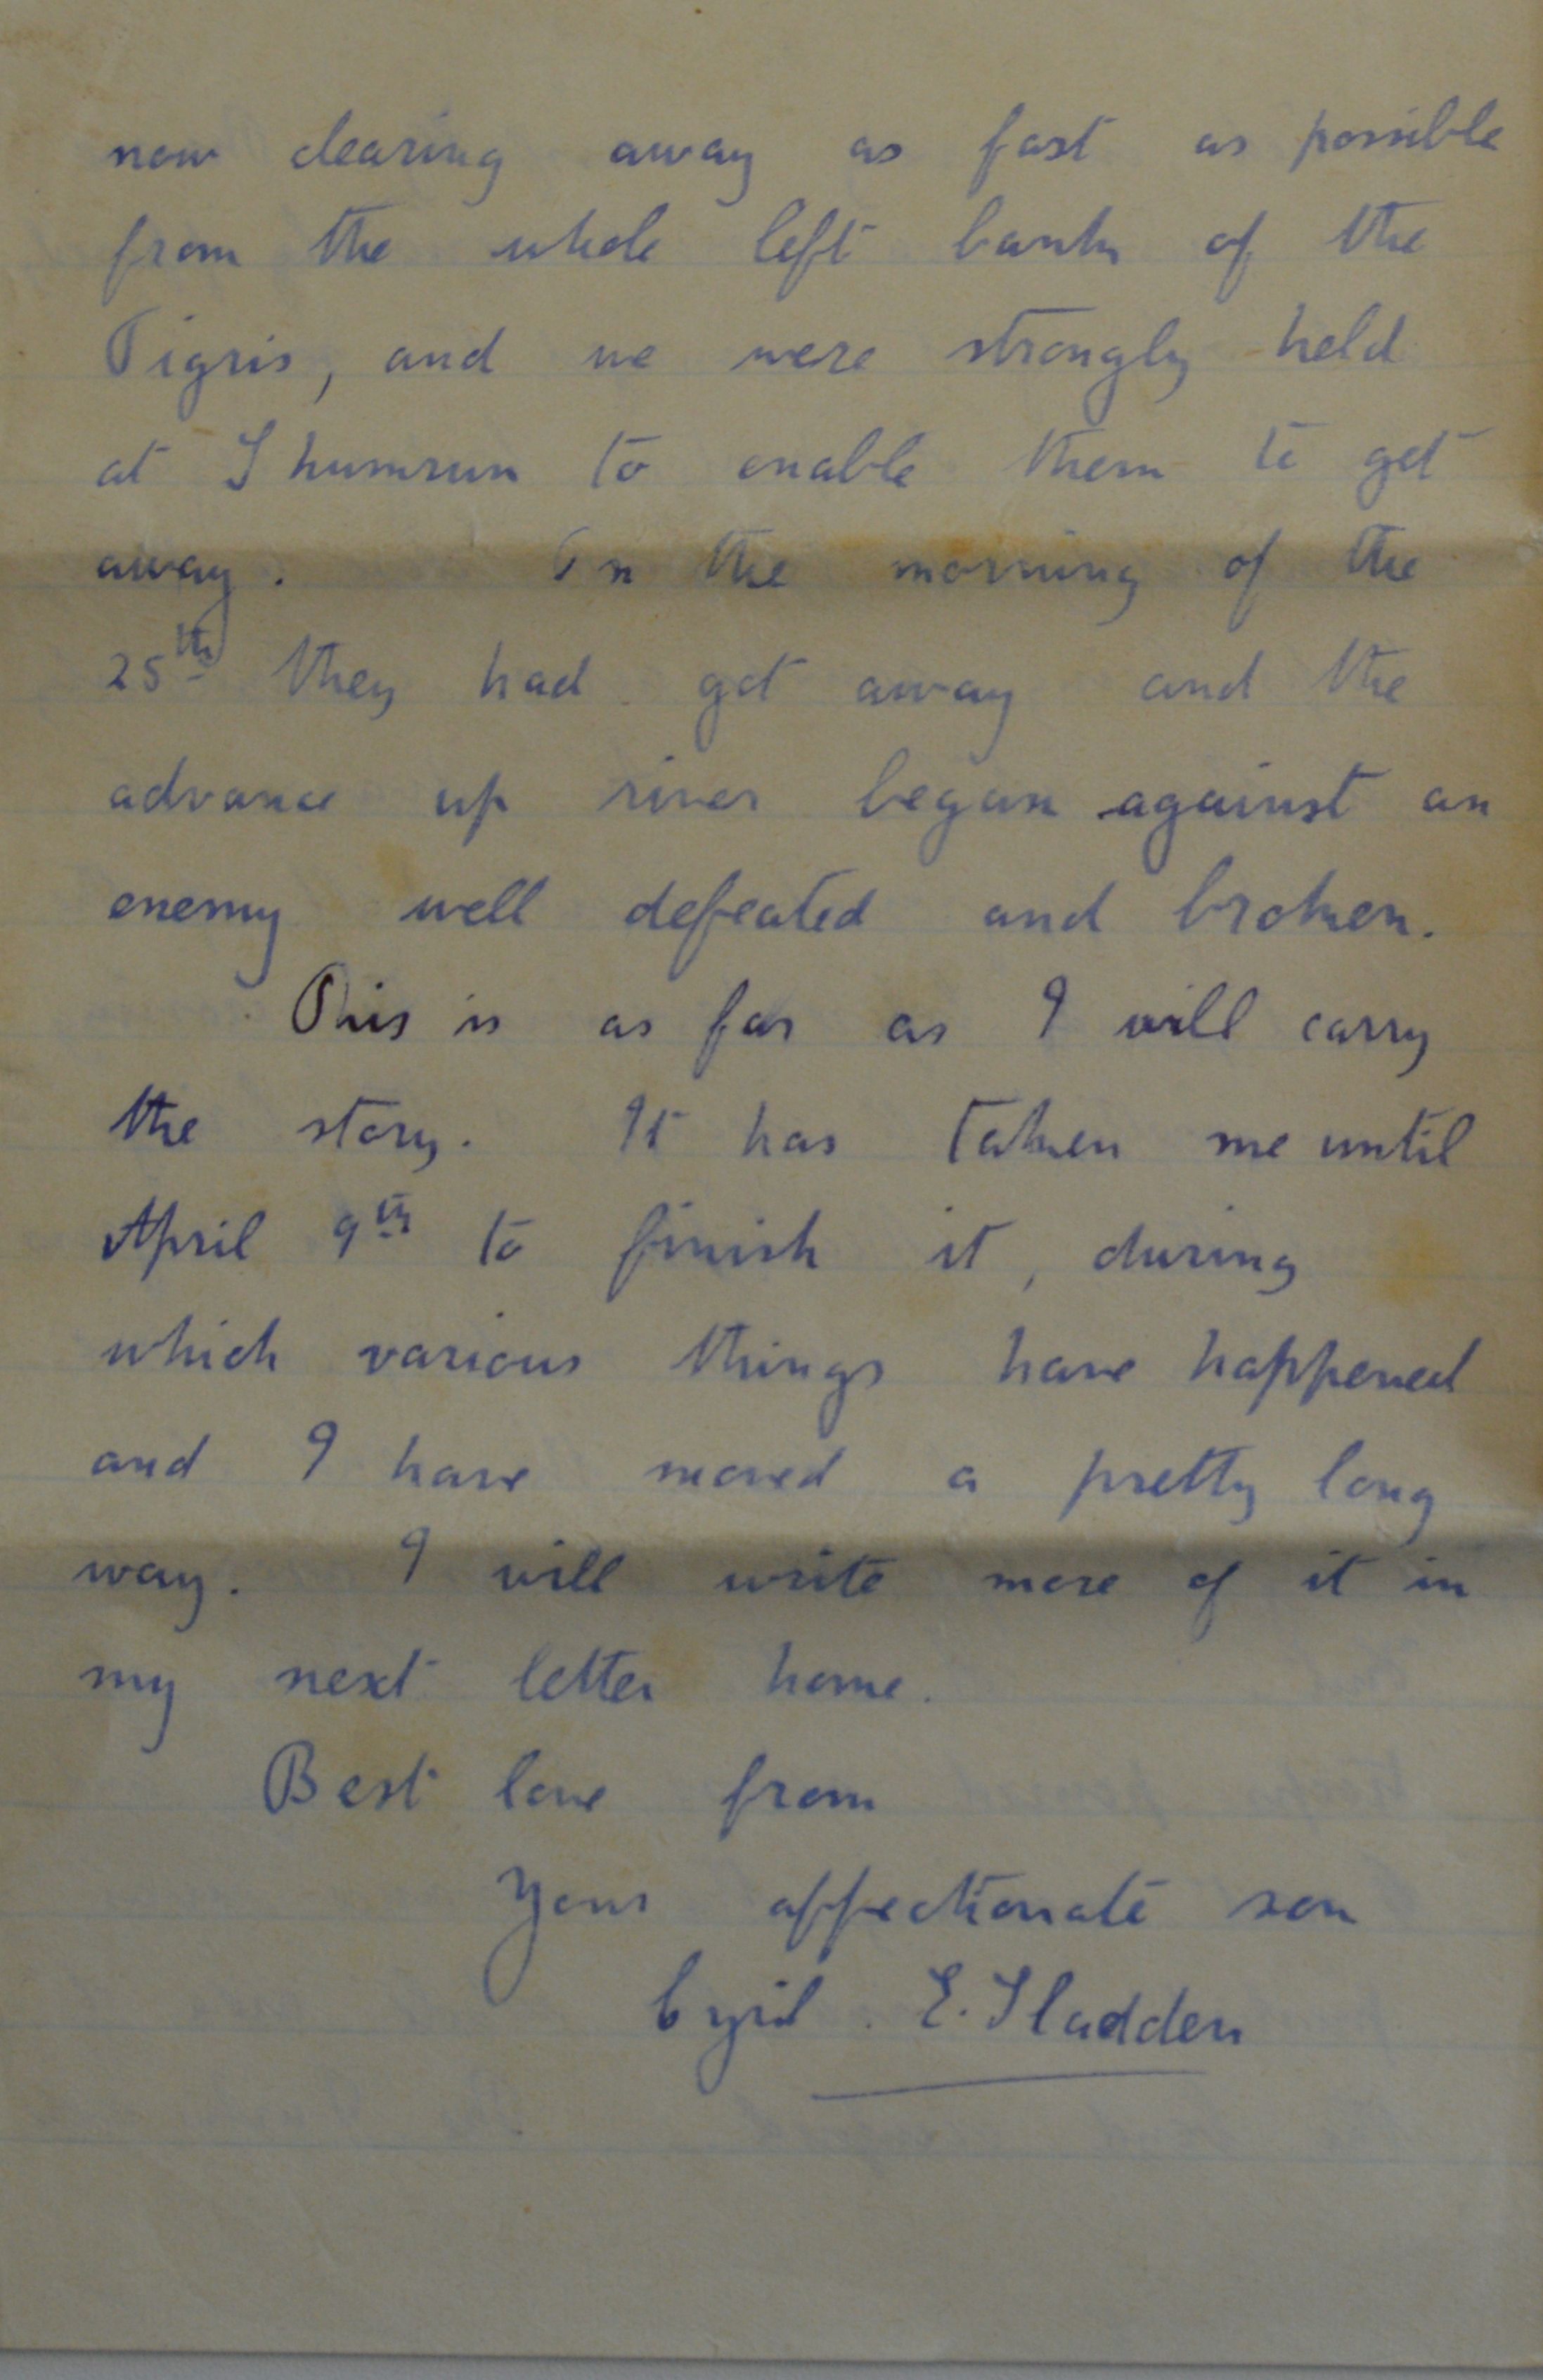 now clearing away as fast as possible
from the whole left bank of the
Tigris, and we were strongly held
at Shumrun to enable them to get
away. On the morning of the
25th they had got away and the
advance up river began against an
enemy well defeated and broken.
This is as far as I will carry
the story. It has taken me until
April 9th to finish it, during
which various things have happened
and I have moved a pretty long
way. I will write more of it in
my next letter home.
Best love from
Your affectionate son
Cyril E. Sladden